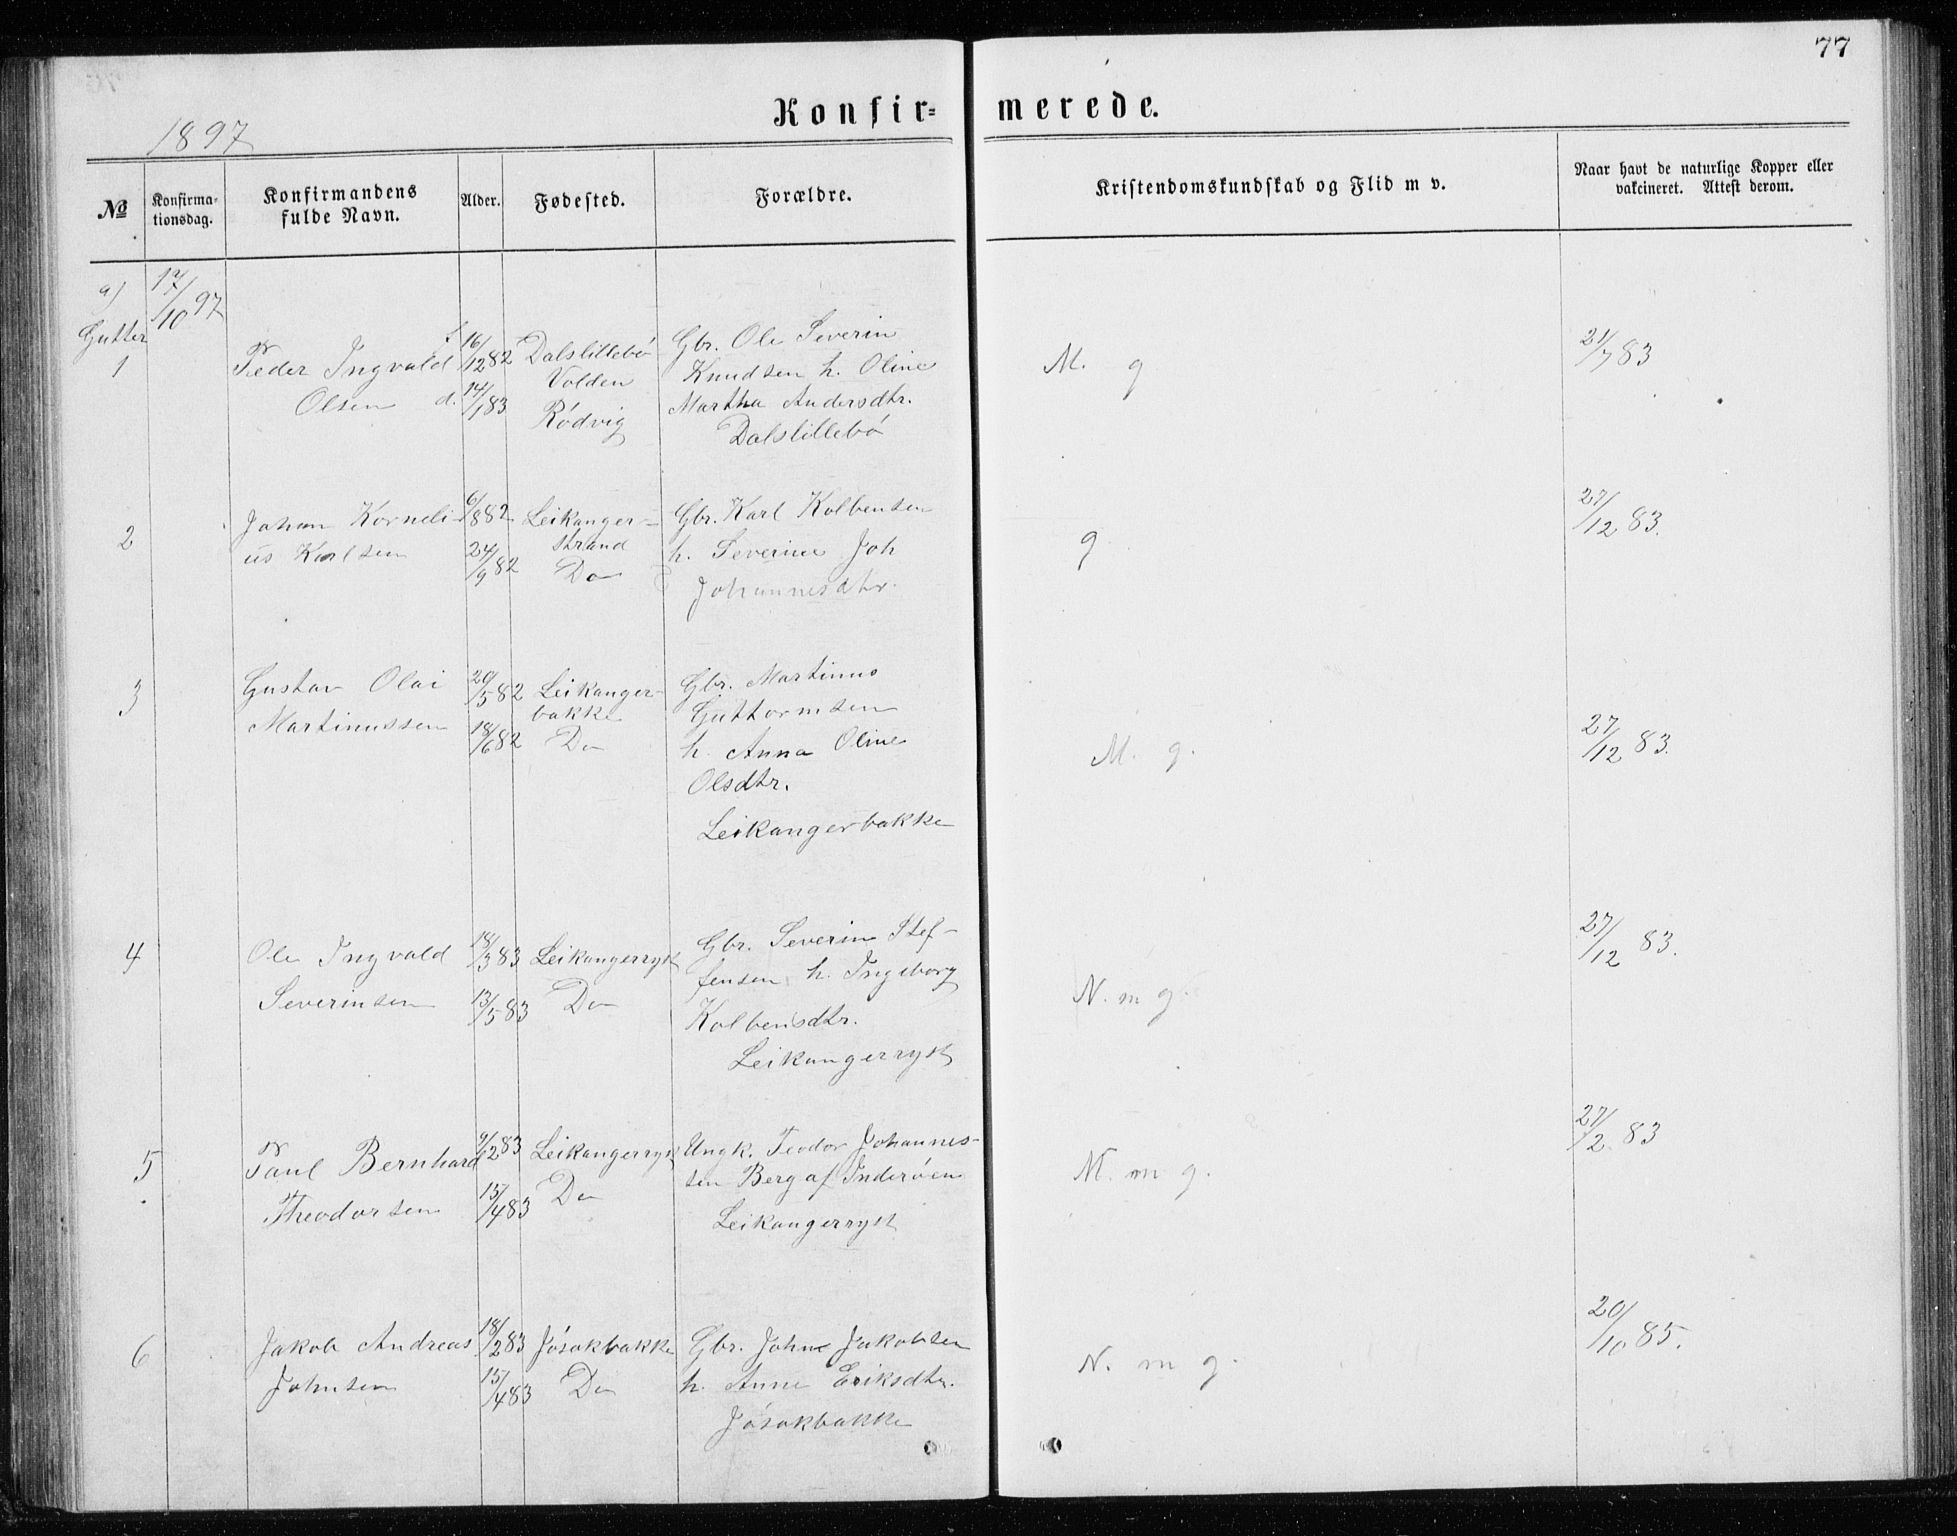 77
Konfir= merede.
1897
№ Konfirma-tionsdag. Konfirmandens fulde Navn. Alder. Fødested. Forældre. Kristendomskundskab og Flid m v. Naar havt de naturlige Kopper eller vakcineret. Attest derom.
a) 17/10 97
Gutter
1 Peder Ingvald f. 16/12 82 Dalslillebø Gbr. Ole Severin M. g 21/7 83
Olsen d. 14/1 83 Volden Knudsen h. Oline
Rødvig Martha Andersdtr.
Dalslillebø
2 Johan Korneli- 6/8 82 Leikanger- Gbr. Karl Kolbensen g 27/12 83.
us Karlsen 24/9 82 strand h. Severine Joh
Do Johannesdtr.
3 Gustav Olai 20/5 82 Leikanger- Gbr. Martinus M. g. 27/12 83.
Martinussen 18/6 82 bakke Guttormsen
Do h. Anna Oline
Olsdtr.
Leikangerbakke
4 Ole Ingvald 18/3 83 Leikangerryst Gbr. Severin Stef- N. m g. 27/12 83.
Severinsen 13/5 83 Do fensen h. Ingeborg
Kolbensdtr.
Leikangerryst
5 Paul Bernhard 9/2 83 Leikangerryst Ungk. Teodor Johannes- M. m g. 27/12 83
Theodorsen 15/4 83 Do sen Berg af Inderøen
Leikangerryst
6 Jakob Andreas 18/2 83 Jøsokbakke Gbr. Johne Jakobsen N. m g. 20/10 85.
Johnsen 15/4 83 Do h. Anne Eriksdtr.
Jøsokbakke